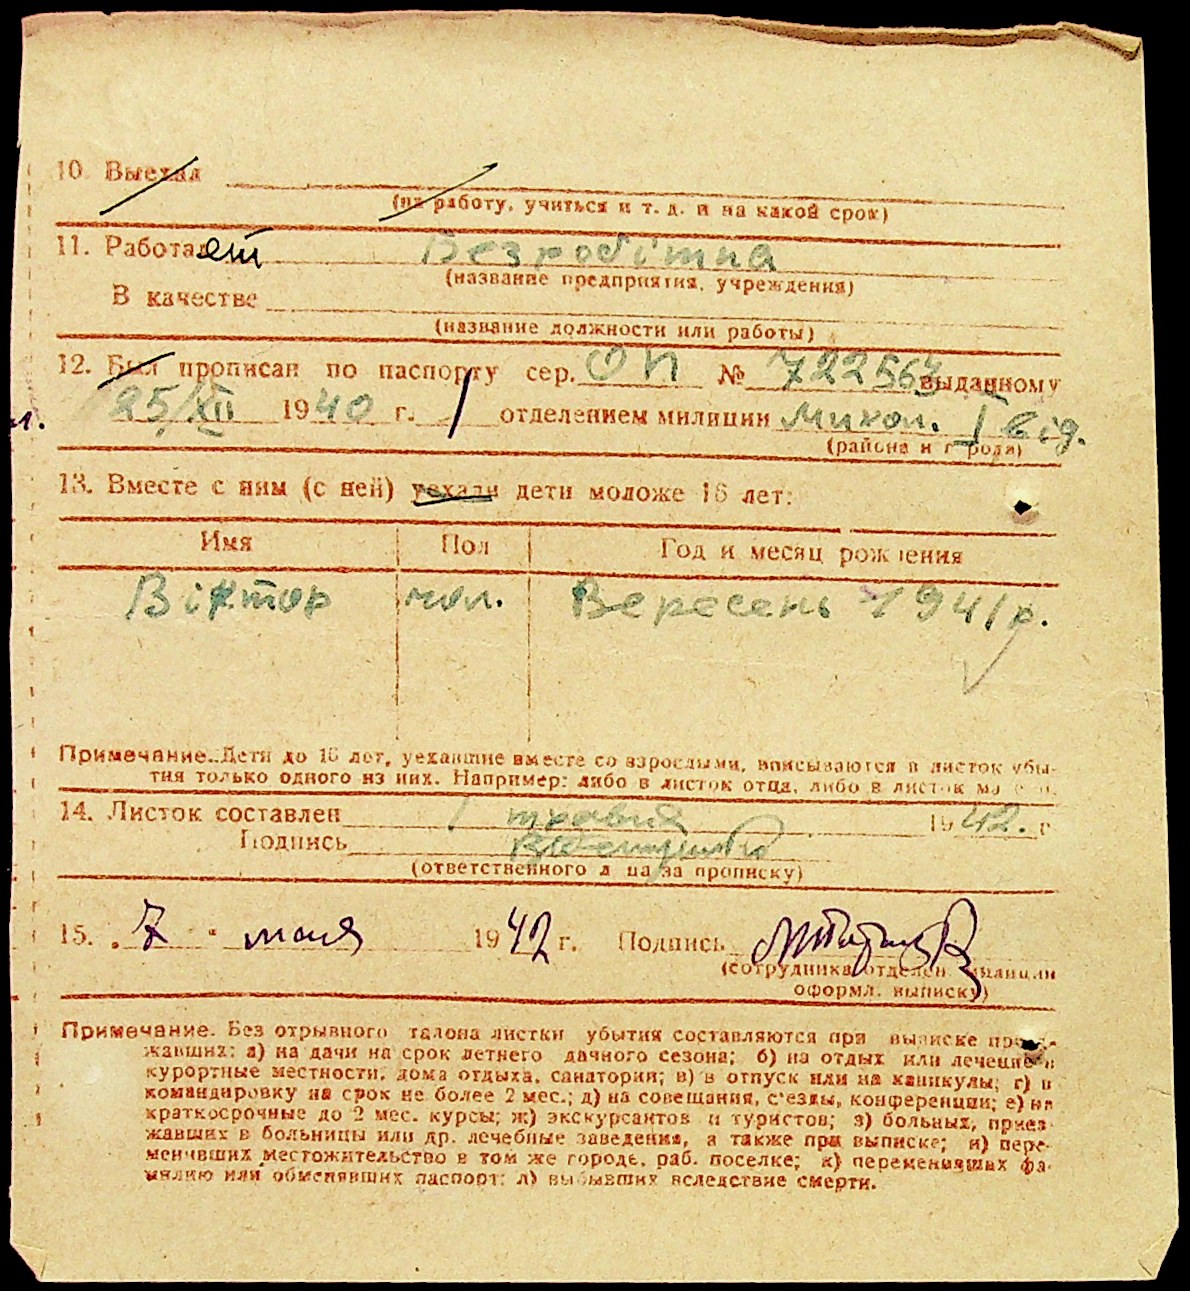 10. Выехал
(на работу, учиться и т. д. и на какой срок)
11. Работает Безробітна
(название предприятия, учреждения)
В качестве
(название должности или работы)
12. Был прописан по паспорту сер. ОП № 722563 выданному
25/XII 1940 г. 1 отделением милиции Микол. I від.
(района и города)
13. Вместе с ним (с ней) уехали дети моложе 16 лет:
Имя Пол Год и месяц рождения
Віктор чол. Вересень 1941 р.
Примечание. Дети до 16 лет, уехавшие вместе со взрослыми, вписываются в листок убы-
тия только одного из них. Например: либо в листок отца, либо в листок
14. Листок составлен 1 травня 1942. г
Подпись
(ответственного лица за прописку)
15. 7 мая 1942 г. Подпись
(сотрудника отделен. милиции
оформл. выписку)
Примечание. Без отрывного талона листки убытия составляются при выписке приез-
жавших: а) на дачи на срок летнего дачного сезона; б) на отдых или лечение в
курортные местности, дома отдыха, санатории; в) в отпуск или на каникулы; г) в
командировку на срок не более 2 мес.; д) на совещания, с'езды, конференции; е) на
краткосрочные до 2 мес. курсы; ж) экскурсантов и туристов; з) больных, приез-
жавших в больницы или др. лечебные заведения, а также при выписке; и) пере-
менивших местожительство в том же городе, раб. поселке; к) переменивших фа-
милию или обменявших паспорт; л) выбывших вследствие смерти.